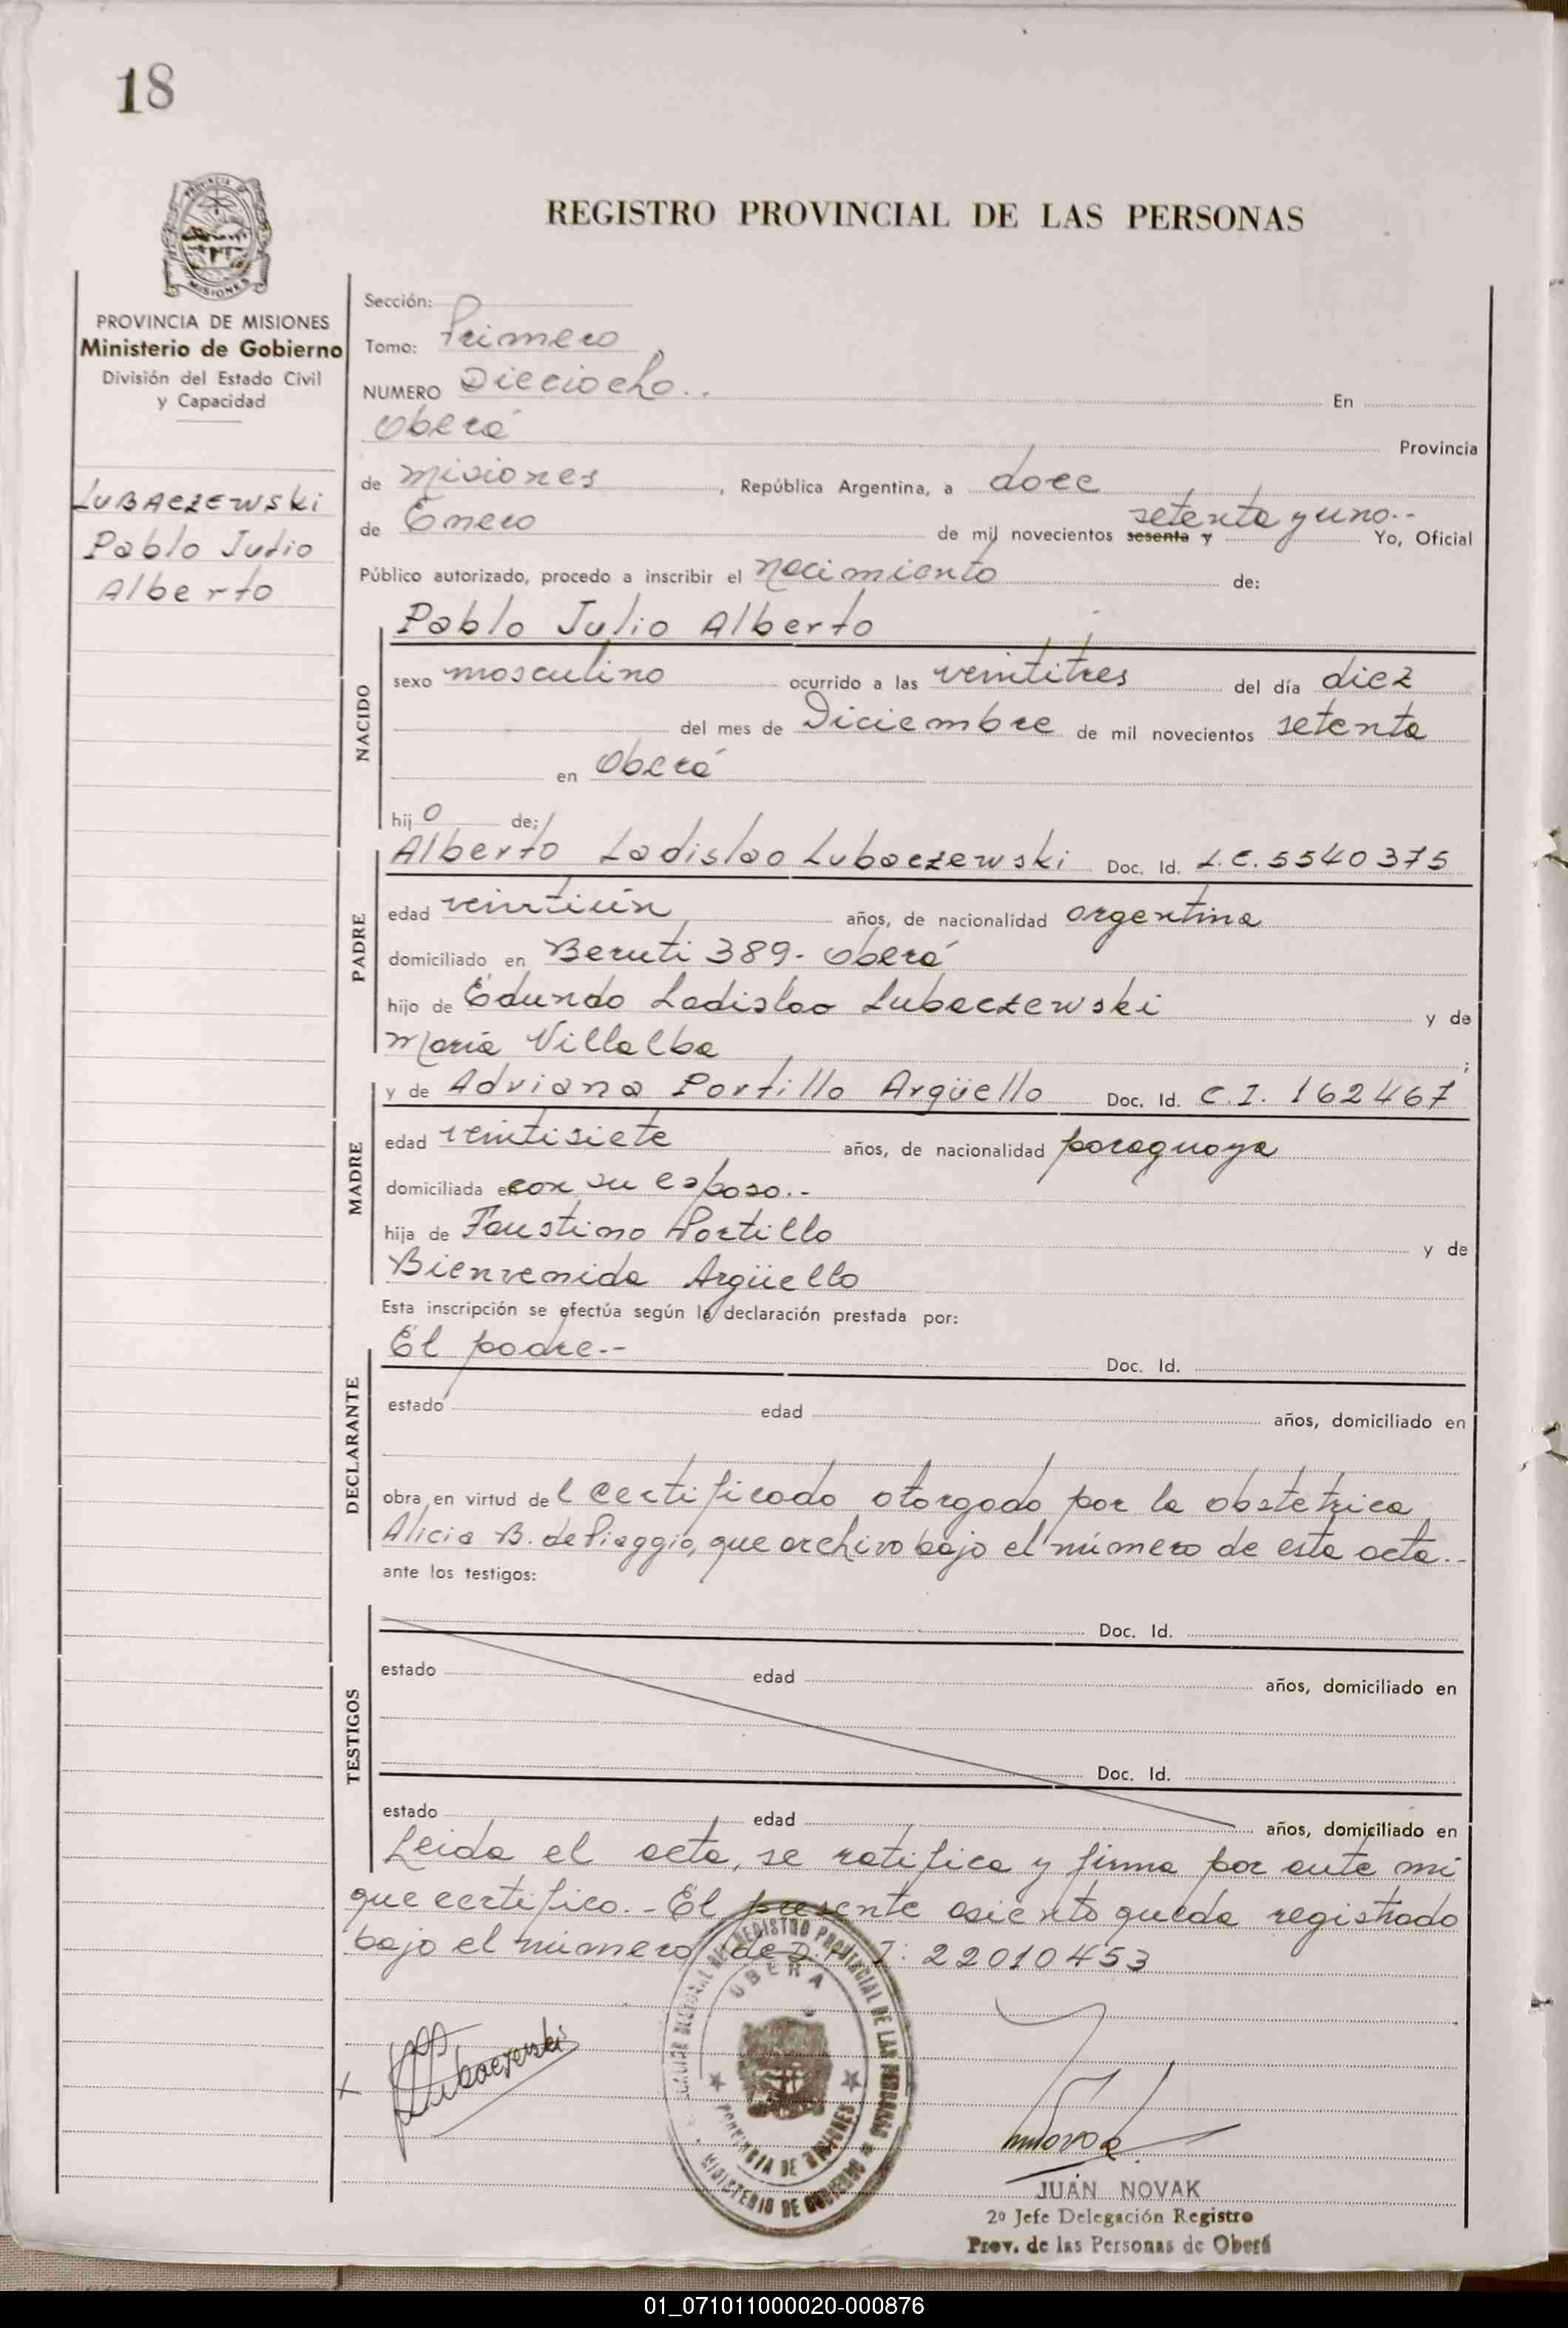 18
REGISTRO PROVINCIAL DE LAS PERSONAS
MISIONES
PROVINCIA DE MISIONES
Ministerio de Gobierno
División del Estado Civil
y Capacidad
LUBACZEWSKI
Pablo Julio
Alberto
Sección:
Tomo: Primero
NUMERO Dieciocho.. En
Oberá Provincia
de Misiones, República Argentina, a doce
de Enero de mil novecientos sesenta y setenta y uno.-- Yo, Oficial
Público autorizado, procedo a inscribir el Nacimiento de:
NACIDO
Pablo Julio Alberto
sexo masculino ocurrido a las veintitres del día diez
del mes de Diciembre de mil novecientos setenta
en Oberá
hijo de:
PADRE
Alberto Ladislao Lubaczewski Doc. Id. L.E. 5540375
edad veintiún años, de nacionalidad argentina
domiciliado en Beruti 389- Oberá
hijo de Edundo Ladislao Lubaczewski y de
María Villalba ;
MADRE
y de Adriana Portillo Argüello Doc. Id. C.I. 162467
edad veintisiete años, de nacionalidad paraguaya
domiciliada en con su esposo.-
hija de Faustino Portillo y de
Bienvenida Argüello
Esta inscripción se efectúa según la declaración prestada por:
DECLARANTE
El padre.-- Doc. Id.
estado edad años, domiciliado en
obra en virtud del certificado otorgado por la obstetrica
Alicia B. de Piaggio, que archivo bajo el número de esta acta.--
ante los testigos:
TESTIGOS
Doc. Id.
estado edad años, domiciliado en
Doc. Id.
estado edad años, domiciliado en
Leida el acta, se ratifica y firma por ante mi
que certifico.- El presente asiento queda registrado
bajo el número de D.N.I: 22010453
REGISTRO PROVINCIAL DE LAS PERSONAS
OBERA
PROVINCIA DE MISIONES
MINISTERIO DE GOBIERNO
Lubaczewski
JUAN NOVAK
2º Jefe Delegación Registro
Prov. de las Personas de Oberá
01_071011000020-000876